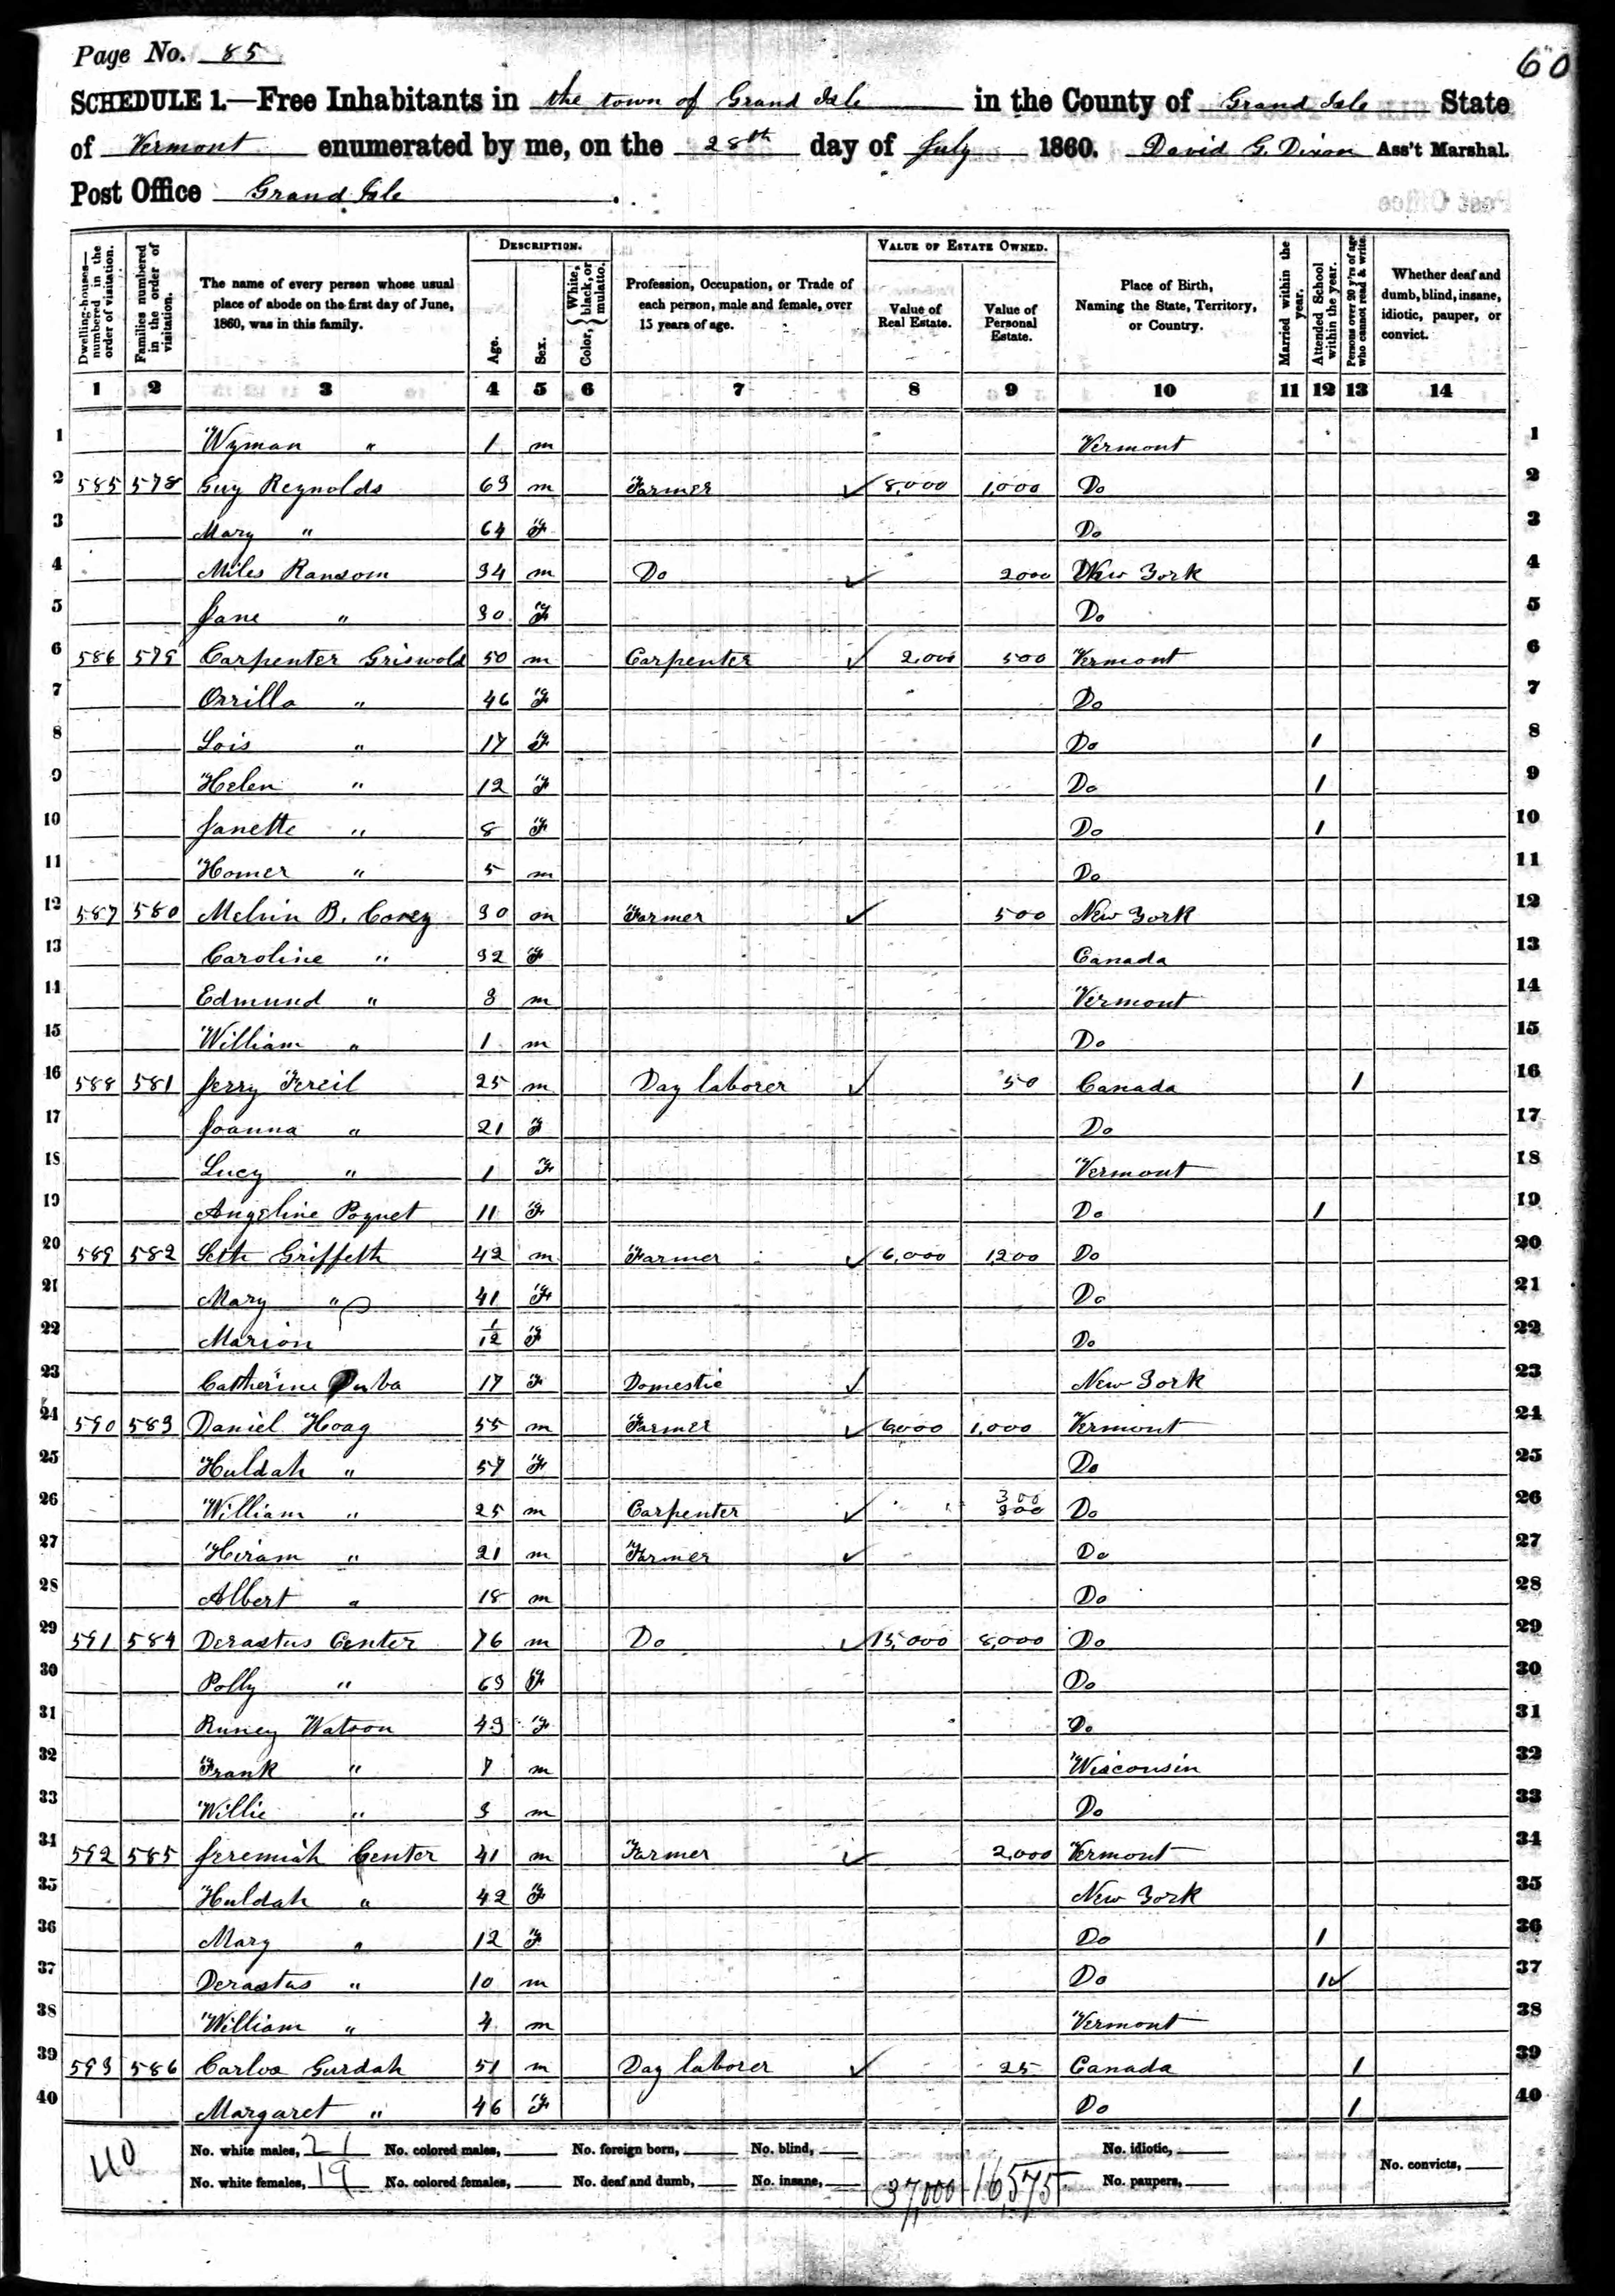 Page No. 85
60
SCHEDULE 1.—Free Inhabitants in the town of Grand Isle in the County of Grand Isle State
of Vermont enumerated by me, on the 28th day of July 1860. David G. Dixon Ass't Marshal.
Post Office Grand Isle
Dwelling-houses—numbered in the order of visitation. Families numbered in the order of visitation. The name of every person whose usual place of abode on the first day of June, 1860, was in this family. DESCRIPTION. Age. Sex. Color, { White, black, or mulatto. Profession, Occupation, or Trade of each person, male and female, over 15 years of age. VALUE OF ESTATE OWNED. Value of Real Estate. Value of Personal Estate. Place of Birth, Naming the State, Territory, or Country. Married within the year. Attended School within the year. Persons over 20 y'rs of age who cannot read & write. Whether deaf and dumb, blind, insane, idiotic, pauper, or convict.
1 2 3 4 5 6 7 8 9 10 11 12 13 14
1 Wyman " 1 m Vermont 1
2 585 578 Guy Reynolds 63 m Farmer ✓ 8,000 1,000 Do 2
3 Mary " 64 F Do 3
4 Miles Ransom 34 m Do ✓ 2000 New York 4
5 Jane " 30 F Do 5
6 586 579 Carpenter Griswold 50 m Carpenter ✓ 2,000 500 Vermont 6
7 Orrilla " 46 F Do 7
8 Lois " 17 F Do 1 8
9 Helen " 12 F Do 1 9
10 Janette " 8 F Do 1 10
11 Homer " 5 m Do 11
12 587 580 Melvin B. Corey 30 m Farmer ✓ 500 New York 12
13 Caroline " 32 F Canada 13
14 Edmund " 3 m Vermont 14
15 William " 1 m Do 15
16 588 581 Jerry Freil 25 m Day laborer ✓ 50 Canada 1 16
17 Joanna " 21 F Do 17
18 Lucy " 1 F Vermont 18
19 Angeline Poquet 11 F Do 1 19
20 589 582 Seth Griffeth 42 m Farmer ✓ 6,000 1,200 Do 20
21 Mary " 41 F Do 21
22 Marion 1/12 F Do 22
23 Catherine Duba 17 F Domestic ✓ New York 23
24 590 583 Daniel Hoag 55 m Farmer ✓ 6,000 1,000 Vermont 24
25 Huldah " 57 F Do 25
26 William " 25 m Carpenter ✓ 300 300 Do 26
27 Hiram " 21 m Farmer ✓ Do 27
28 Albert " 18 m Do 28
29 591 584 Derastus Center 76 m Do ✓ 15,000 8,000 Do 29
30 Polly " 63 F Do 30
31 Watson 43 F Do 31
32 Frank " 7 m Wisconsin 32
33 Willie " 3 m Do 33
34 592 585 Jeremiah Center 41 m Farmer ✓ 2,000 Vermont 34
35 Huldah " 42 F New York 35
36 Mary " 12 F Do 1 36
37 Derastus " 10 m Do 1 ✓ 37
38 William " 4 m Vermont 38
39 593 586 Carlos Gurdah 51 m Day laborer ✓ 25 Canada 1 39
40 Margaret " 46 F Do 1 40
40 No. white males, 21 No. colored males, No. foreign born, No. blind, No. idiotic,
No. white females, 19 No. colored females, No. deaf and dumb, No. insane, 37,000 16,575 No. paupers, No. convicts,